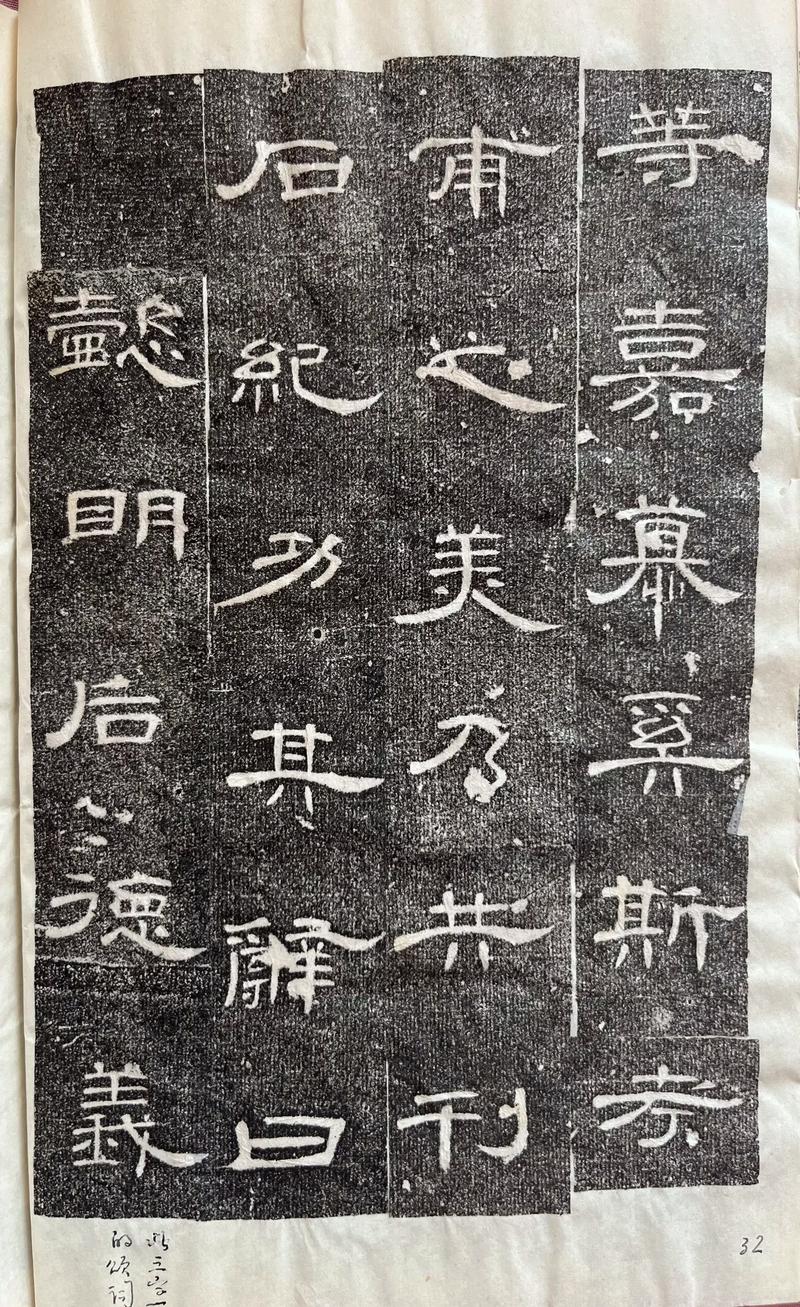 等嘉慕奚斯考
甫之美乃共刊
石紀功其辭曰
懿明后德義
32